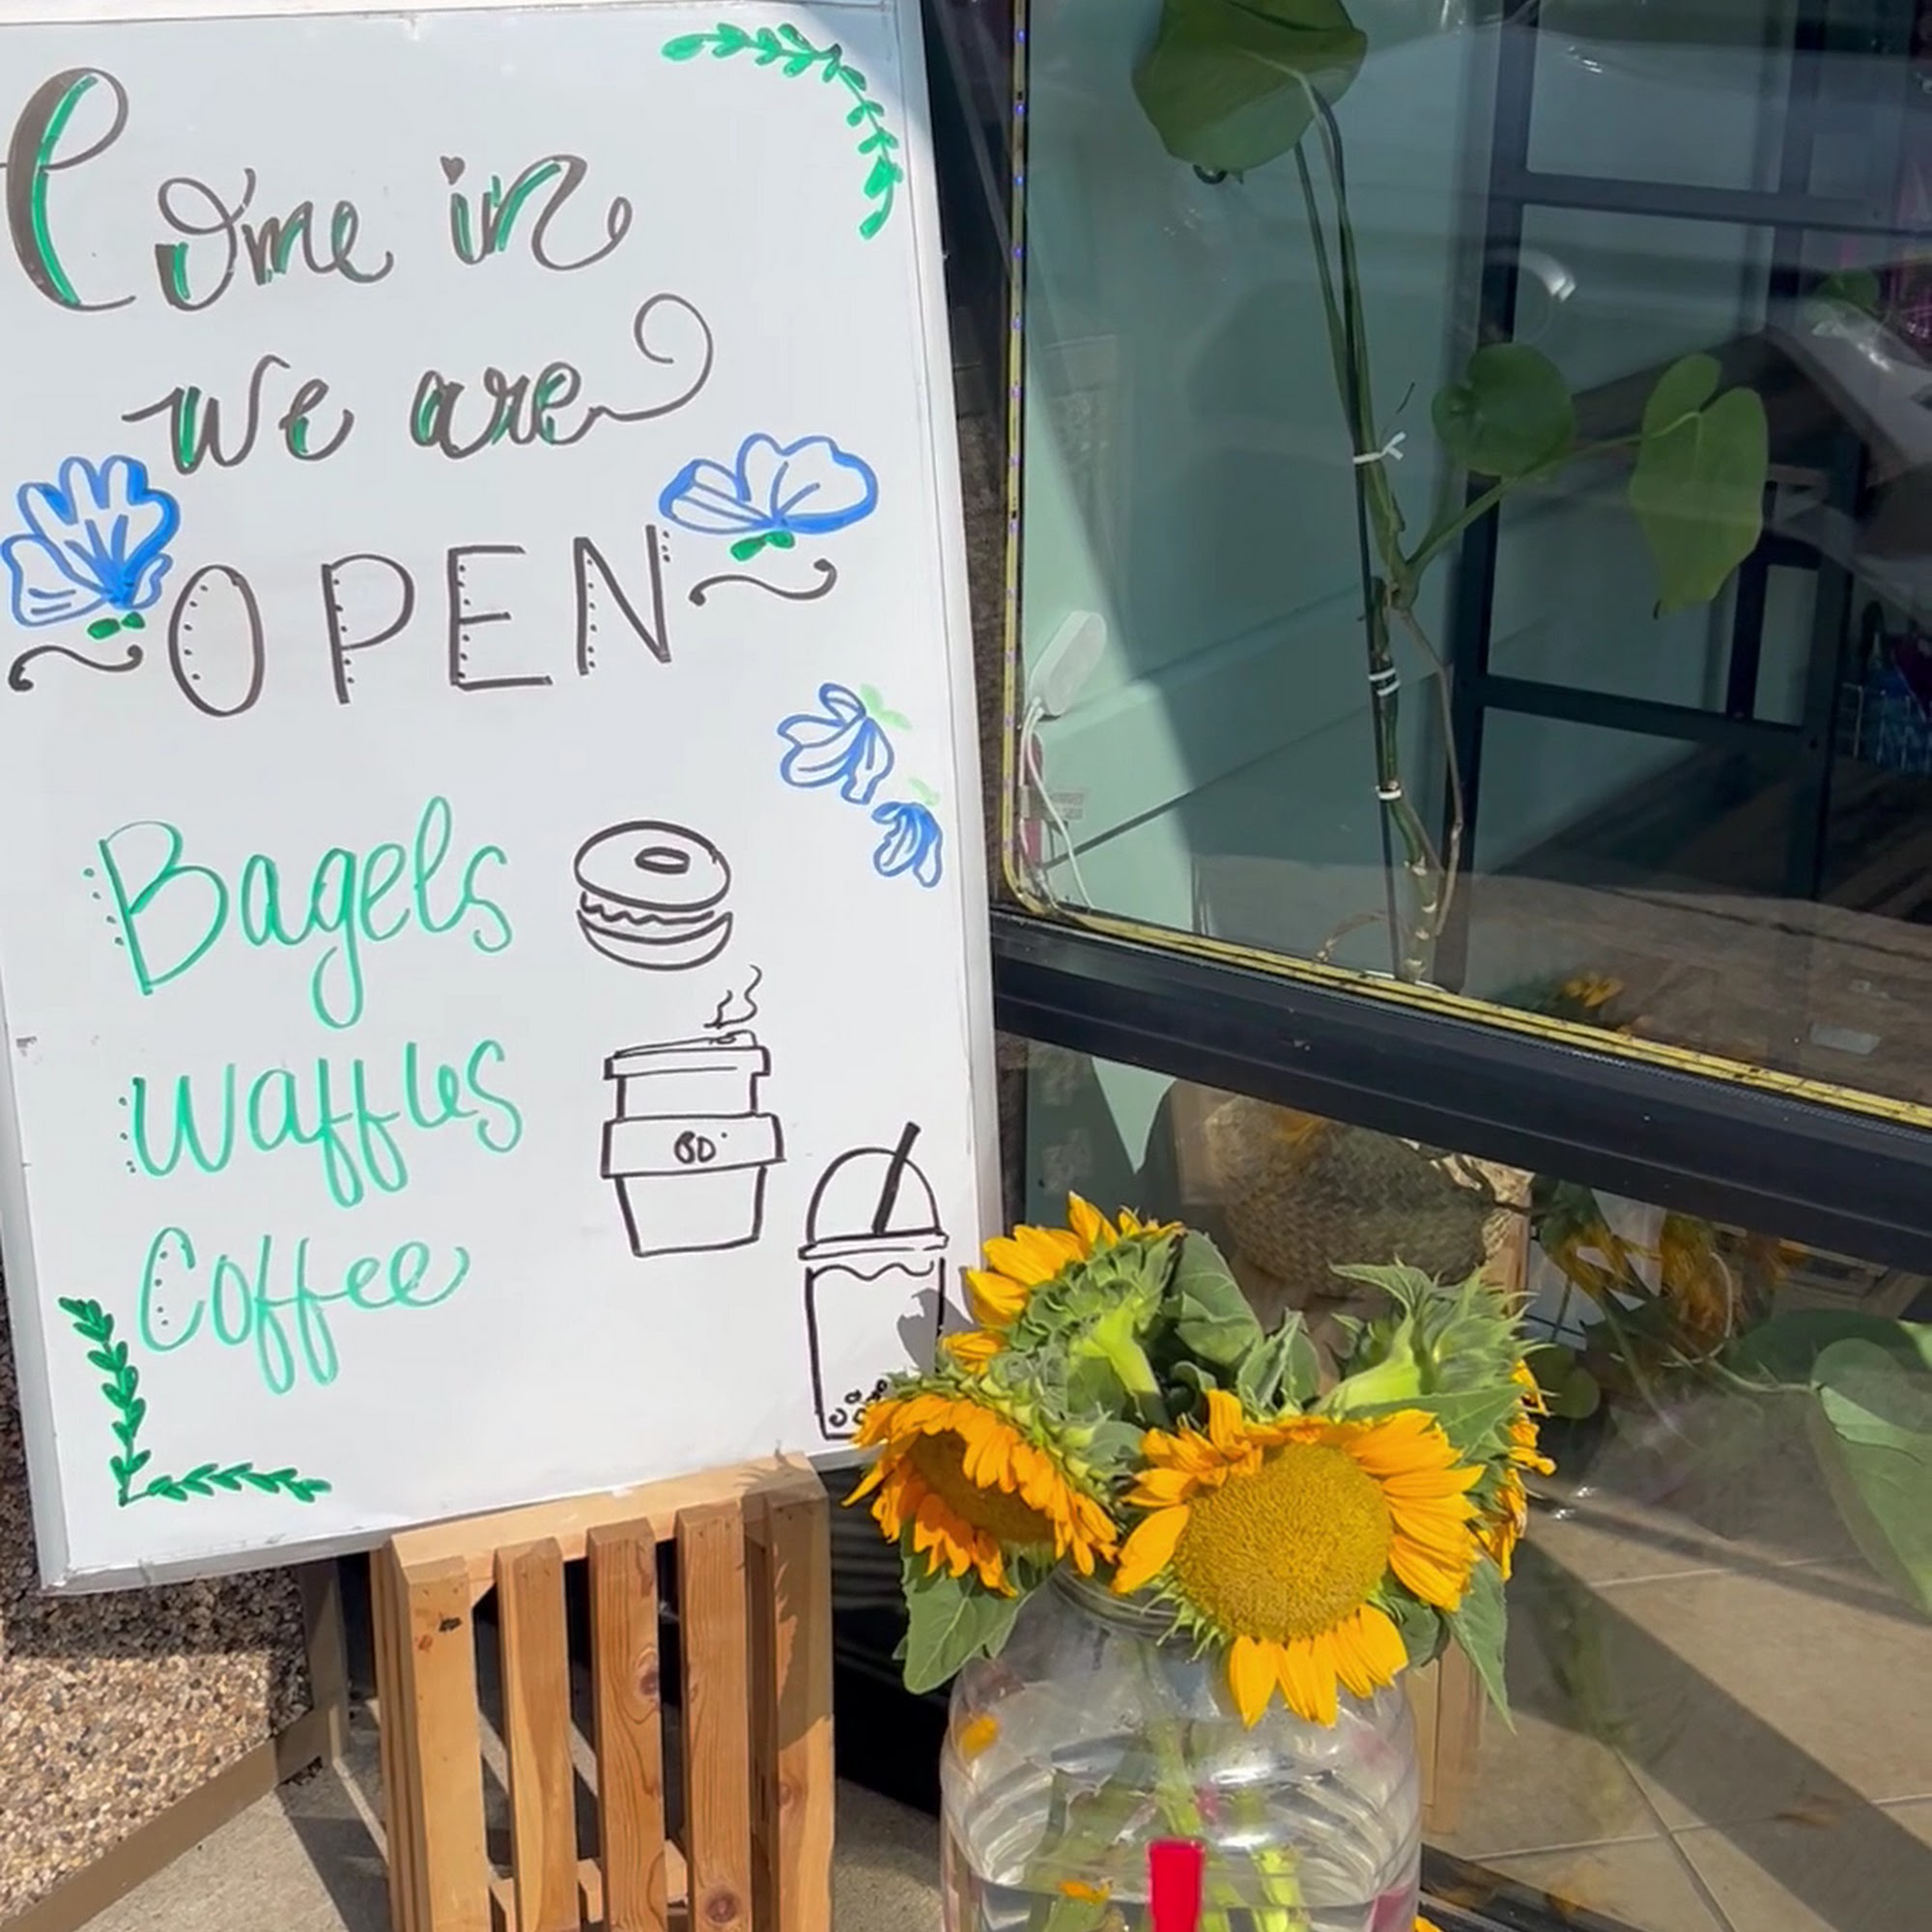 Come in
we are
OPEN
Bagels
Waffles
Coffee
BD